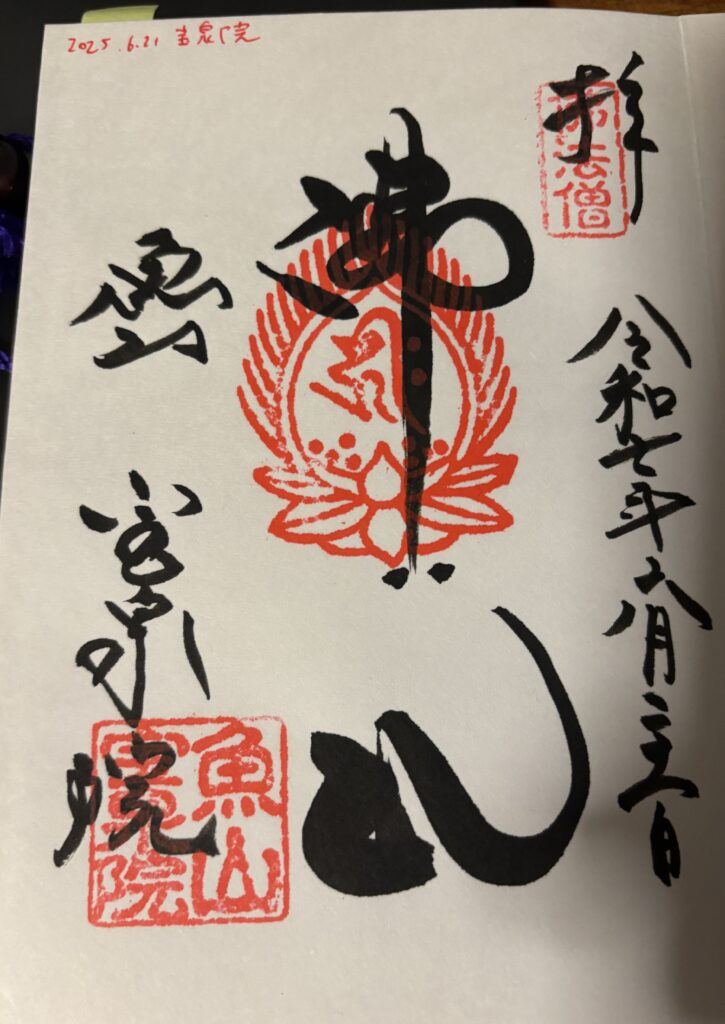 2025.6.21 宝泉院
拝
佛法僧
令和七年六月二十一日
佛心
魚山
宝泉院
魚山
寳泉院